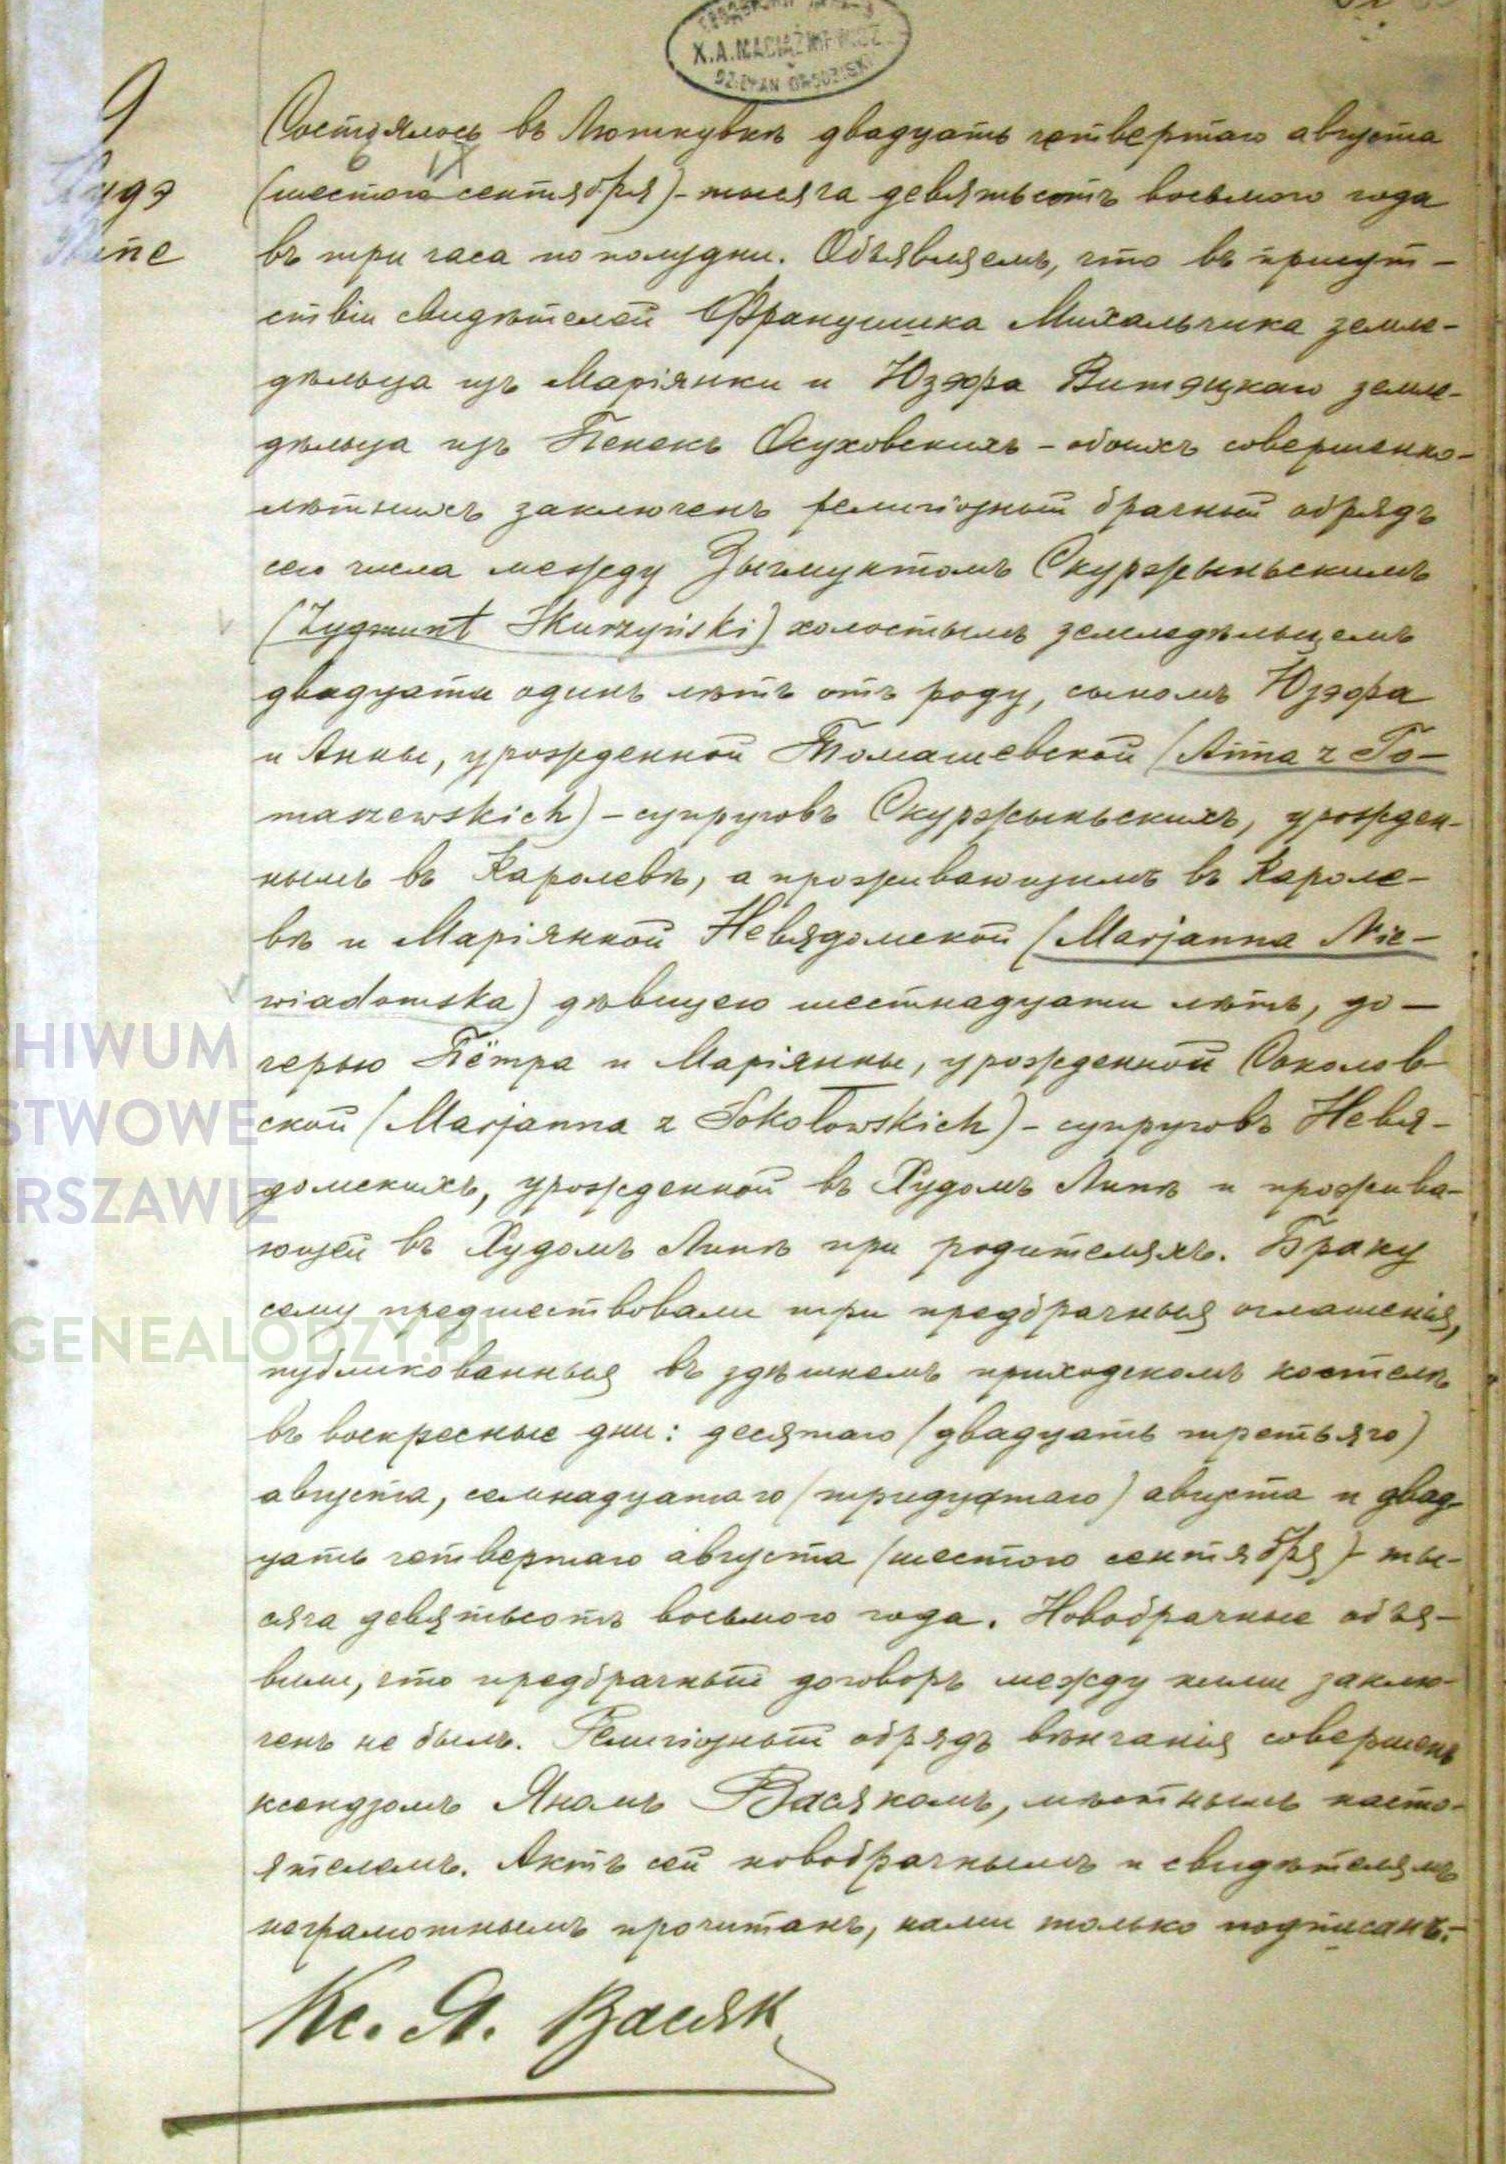 X. A. MACIĄŻKIEWICZ
9
Состоялось въ Люткувкѣ двадцать четвертаго августа
6 IX
(шестого сентября) - тысяча девятьсотъ восьмого года
въ три часа по полудни. Объявляемъ, что въ присут-
ствіи свидѣтелей Францишка Михальчика земле-
дѣльца изъ Маріянки и Юзэфа Витэцкаго земле-
дѣльца изъ Пенекъ Осуховскихъ - обоихъ совершенно-
лѣтнихъ заключенъ религіозный брачный обрядъ
сего числа между Зыгмунтомъ Скуржыньскимъ
(Zygmunt Skurzyński) холостымъ земледѣльцемъ
двадцати одинъ лѣтъ отъ роду, сыномъ Юзэфа
и Анны, урожденной Томашевской (Anna z To-
maszewskich) - супруговъ Скуржыньскихъ, урожден-
нымъ въ Каролевѣ, а проживающимъ въ Кароле-
вѣ и Маріянной Невядомской (Marjanna Nie-
wiadomska) дѣвицею шестнадцати лѣтъ, до-
черью Пётра и Маріянны, урожденной Соколов
ской (Marjanna z Sokołowskich) - супруговъ Невя-
домскихъ, урожденной въ Худомъ Липѣ и прожива-
ющей въ Худомъ Липѣ при родителяхъ. Браку
сему предшествовали три предбрачныя оглашенія,
публикованныя въ здѣшнемъ приходскомъ костелѣ
въ воскресные дни: десятаго (двадцать третьяго)
августа, семнадцатаго (тридцатаго) августа и двад-
цать четвертаго августа (шестого сентября) - ты-
сяча девятьсотъ восьмого года. Новобрачные объя-
вили, что предбрачный договоръ между ними заклю-
ченъ не былъ. Религіозный обрядъ вѣнчанія совершенъ
ксендзомъ Яномъ Васякомъ, мѣстнымъ насто-
ятелемъ. Актъ сей новобрачнымъ и свидѣтелямъ
неграмотнымъ прочитанъ, нами только подписанъ.-
Кс. Я. Васяк
HIWUM
STWOWE
RSZAWIE
GENEALODZY.PL